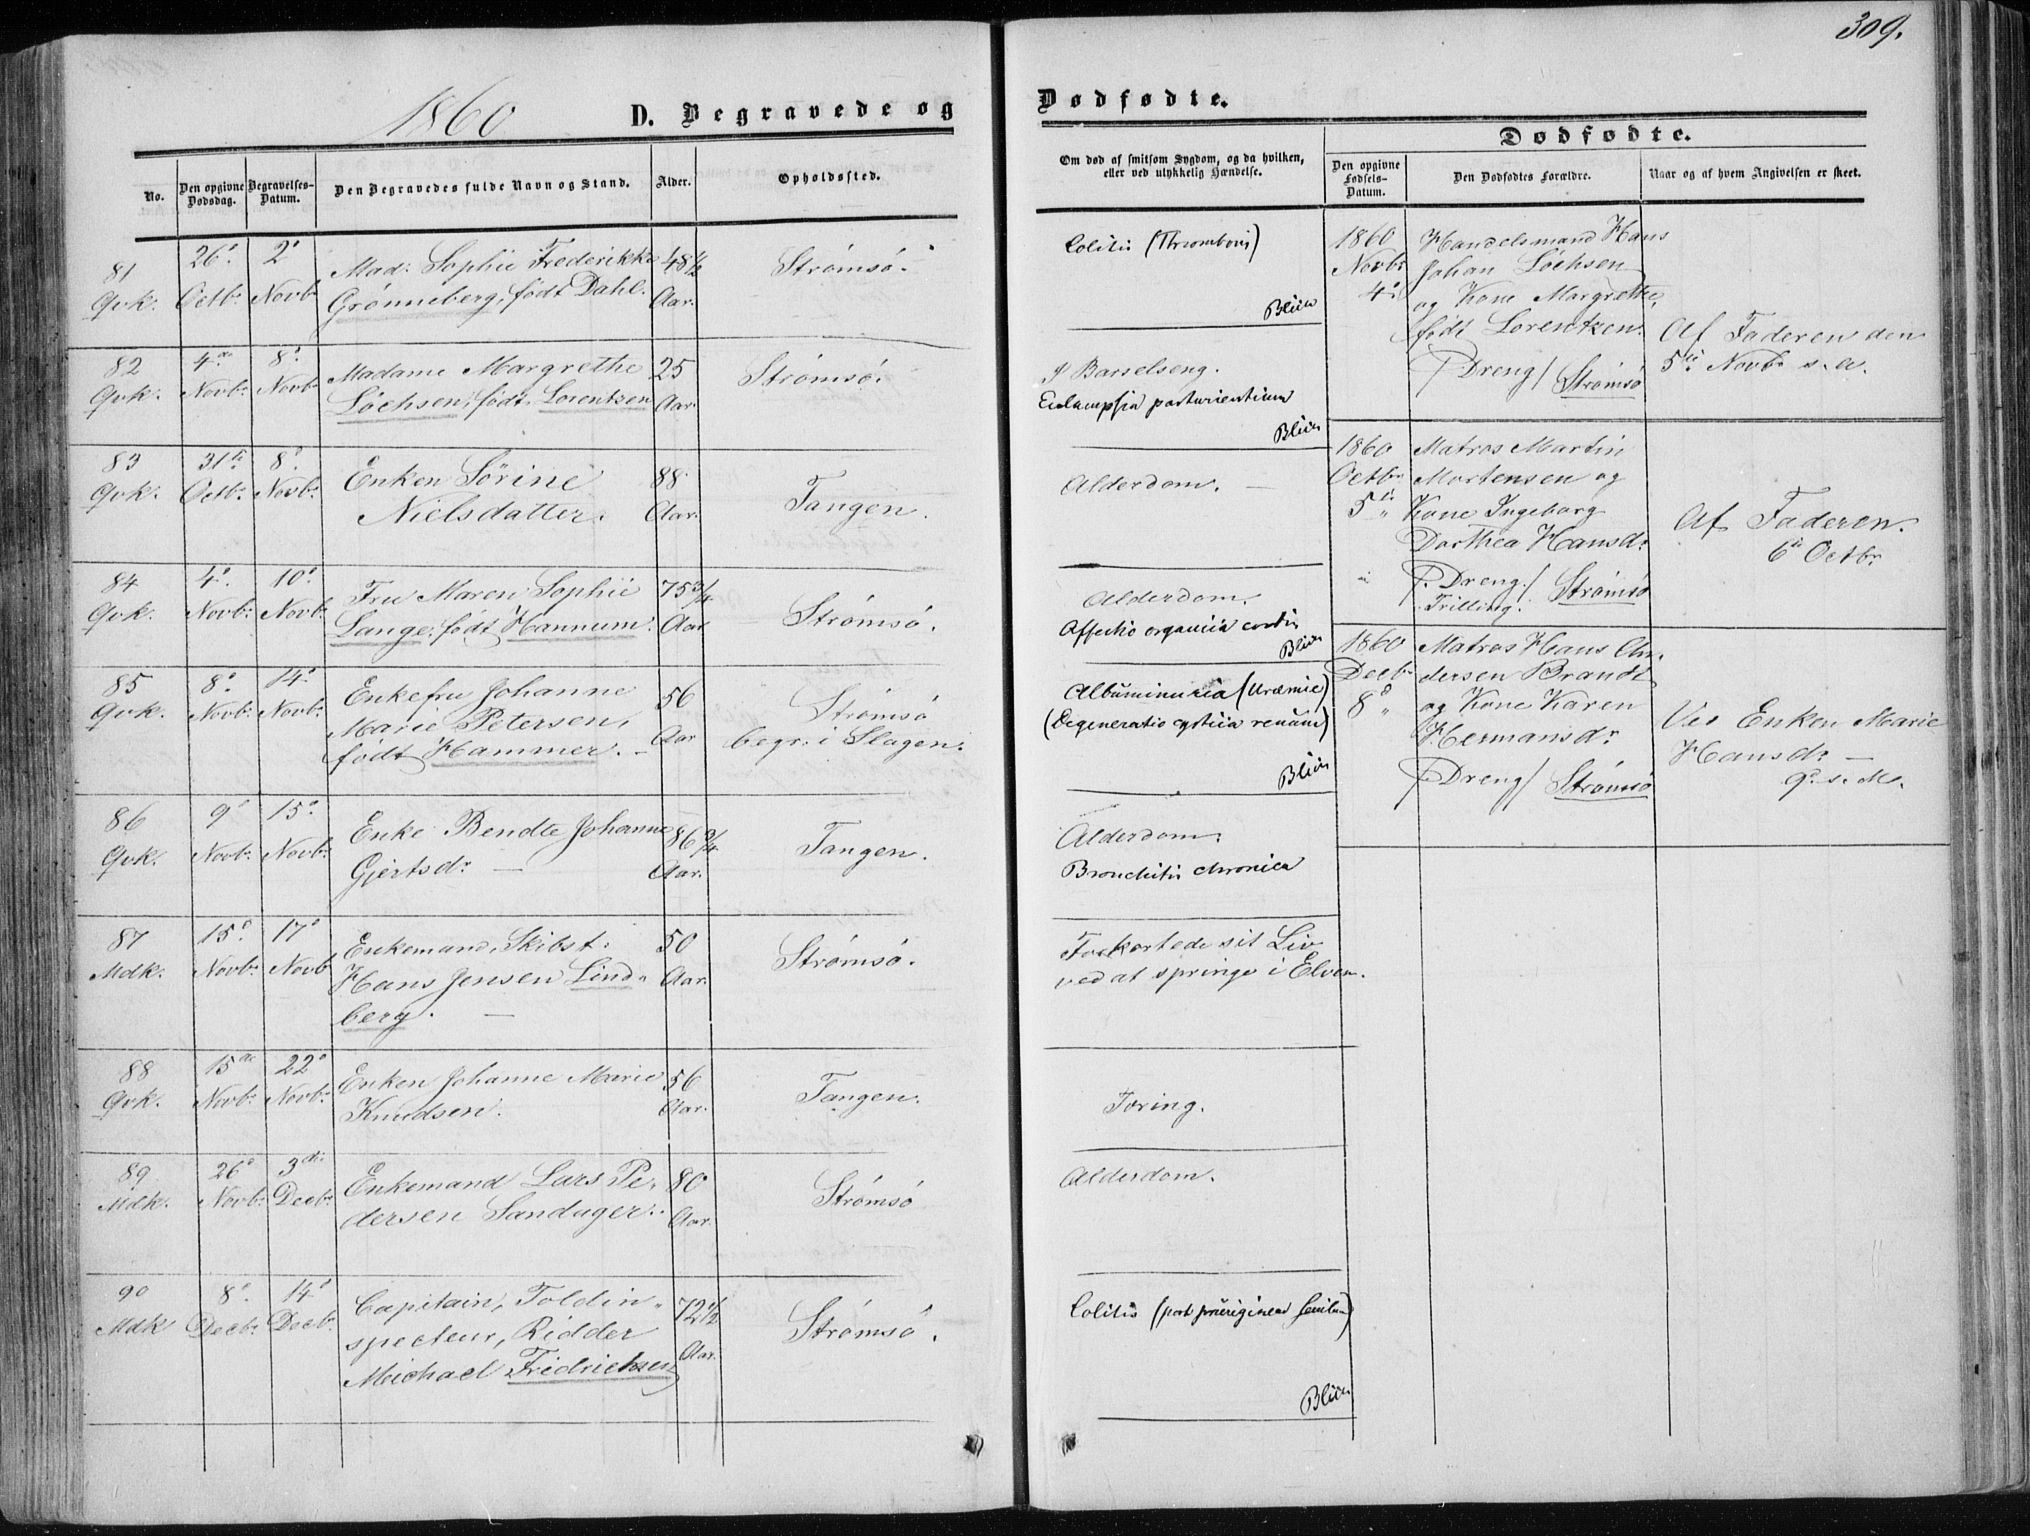 309.
1860
D. Begravede og
Dødfødte.
No.
Den opgivne Dødsdag.
Begravelses-Datum.
Den Begravedes fulde Navn og Stand.
Alder.
Opholdssted.
Om død af smitsom Sygdom, og da hvilken,
eller ved ulykkelig Hændelse.
Dødfødte.
Den opgivne Fødsels-Datum.
Den Dødfødtes Forældre.
Naar og af hvem Angivelsen er skeet.
81 Qvk.
26. Octbr.
2 Novbr
Mad: Sophie Frederikke
Grønneberg, født Dahl.
48½ Aar.
Strømsø.
Colitis (Thrombosis)
Blich
82 Qvk.
4de Novbr.
8. Novbr
Madame Margrethe
Løchsen, født Lorentzen
25 Aar.
Strømsø.
I Barselseng.
Eclampsia parturientium
Blich
83 Qvk.
31te Octbr.
8. Novbr.
Enken Sørine
Nielsdatter.
88 Aar.
Tangen.
Alderdom. —
84 Qvk.
4. Novbr.
10. Novbr.
Fru Maren Sophie
Lange, født Hannum.
75¾ Aar
Strømsø.
Alderdom.
Affectio organica cordis
Blich
85 Qvk.
8. Novbr.
14. Novbr.
Enkefru Johanne
Marie Petersen,
født Hammer. —
56 Aar
Strømsø
begr. i Slagen.
Albuminuria (Uræmie)
(Degeneratio cystica renum)
Blich
86 Qvk.
9 Novbr.
15. Novbr.
Enke Bendte Johanne
Gjertsdr —
86¾ Aar.
Tangen.
Alderdom.
Bronchitis chronica
87 Mdk.
15. Novbr.
17 Novbr
Enkemand, Skibst.
Hans Jensen Lind-
berg. —
50 Aar.
Strømsø.
Forkortede sit Liv
ved at springe i Elven.
88 Qvk.
15de Novbr.
22 Novbr.
Enken Johanne Marie
Knudsen.
56 Aar.
Tangen.
Tæring.
89 Mdk.
26 Novbr.
3die Decbr.
Enkemand Lars Pe-
dersen Sandager.
80 Aar.
Strømsø
Alderdom.
90 Mdk
8. Decbr.
14 Decbr.
Capitain, Toldin-
specteur, Ridder
Michael Fridrichsen
72½ Aar.
Strømsø.
Colitis (post pruriginem senilem)
Blich
1860
Novbr
4.
Handelsmand Hans
Johan Løchsen
og Kone Margrethe,
født Lorentzen.
/: Dreng / Strømsø
Af Faderen den
5te Novbr s. a.
1860
Octbr
5te
Matros Martin
Mortensen og
Kone Ingeborg
Dorthea Hansdr
/: Dreng / Strømsø
Trilling.
Af Faderen.
6te Octbr.
1860
Decbr
8
Matros Hans An-
dersen Brandt
og Kone Karen
Hermansdr
/: Dreng / Strømsø
Ved Enken Marie
Hansdr —
9. s. M.